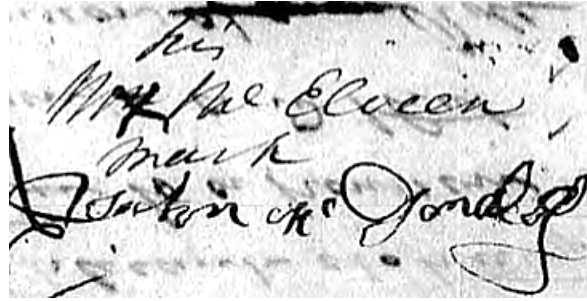 his
Wm X Mc Elveen
mark
Mc Donald